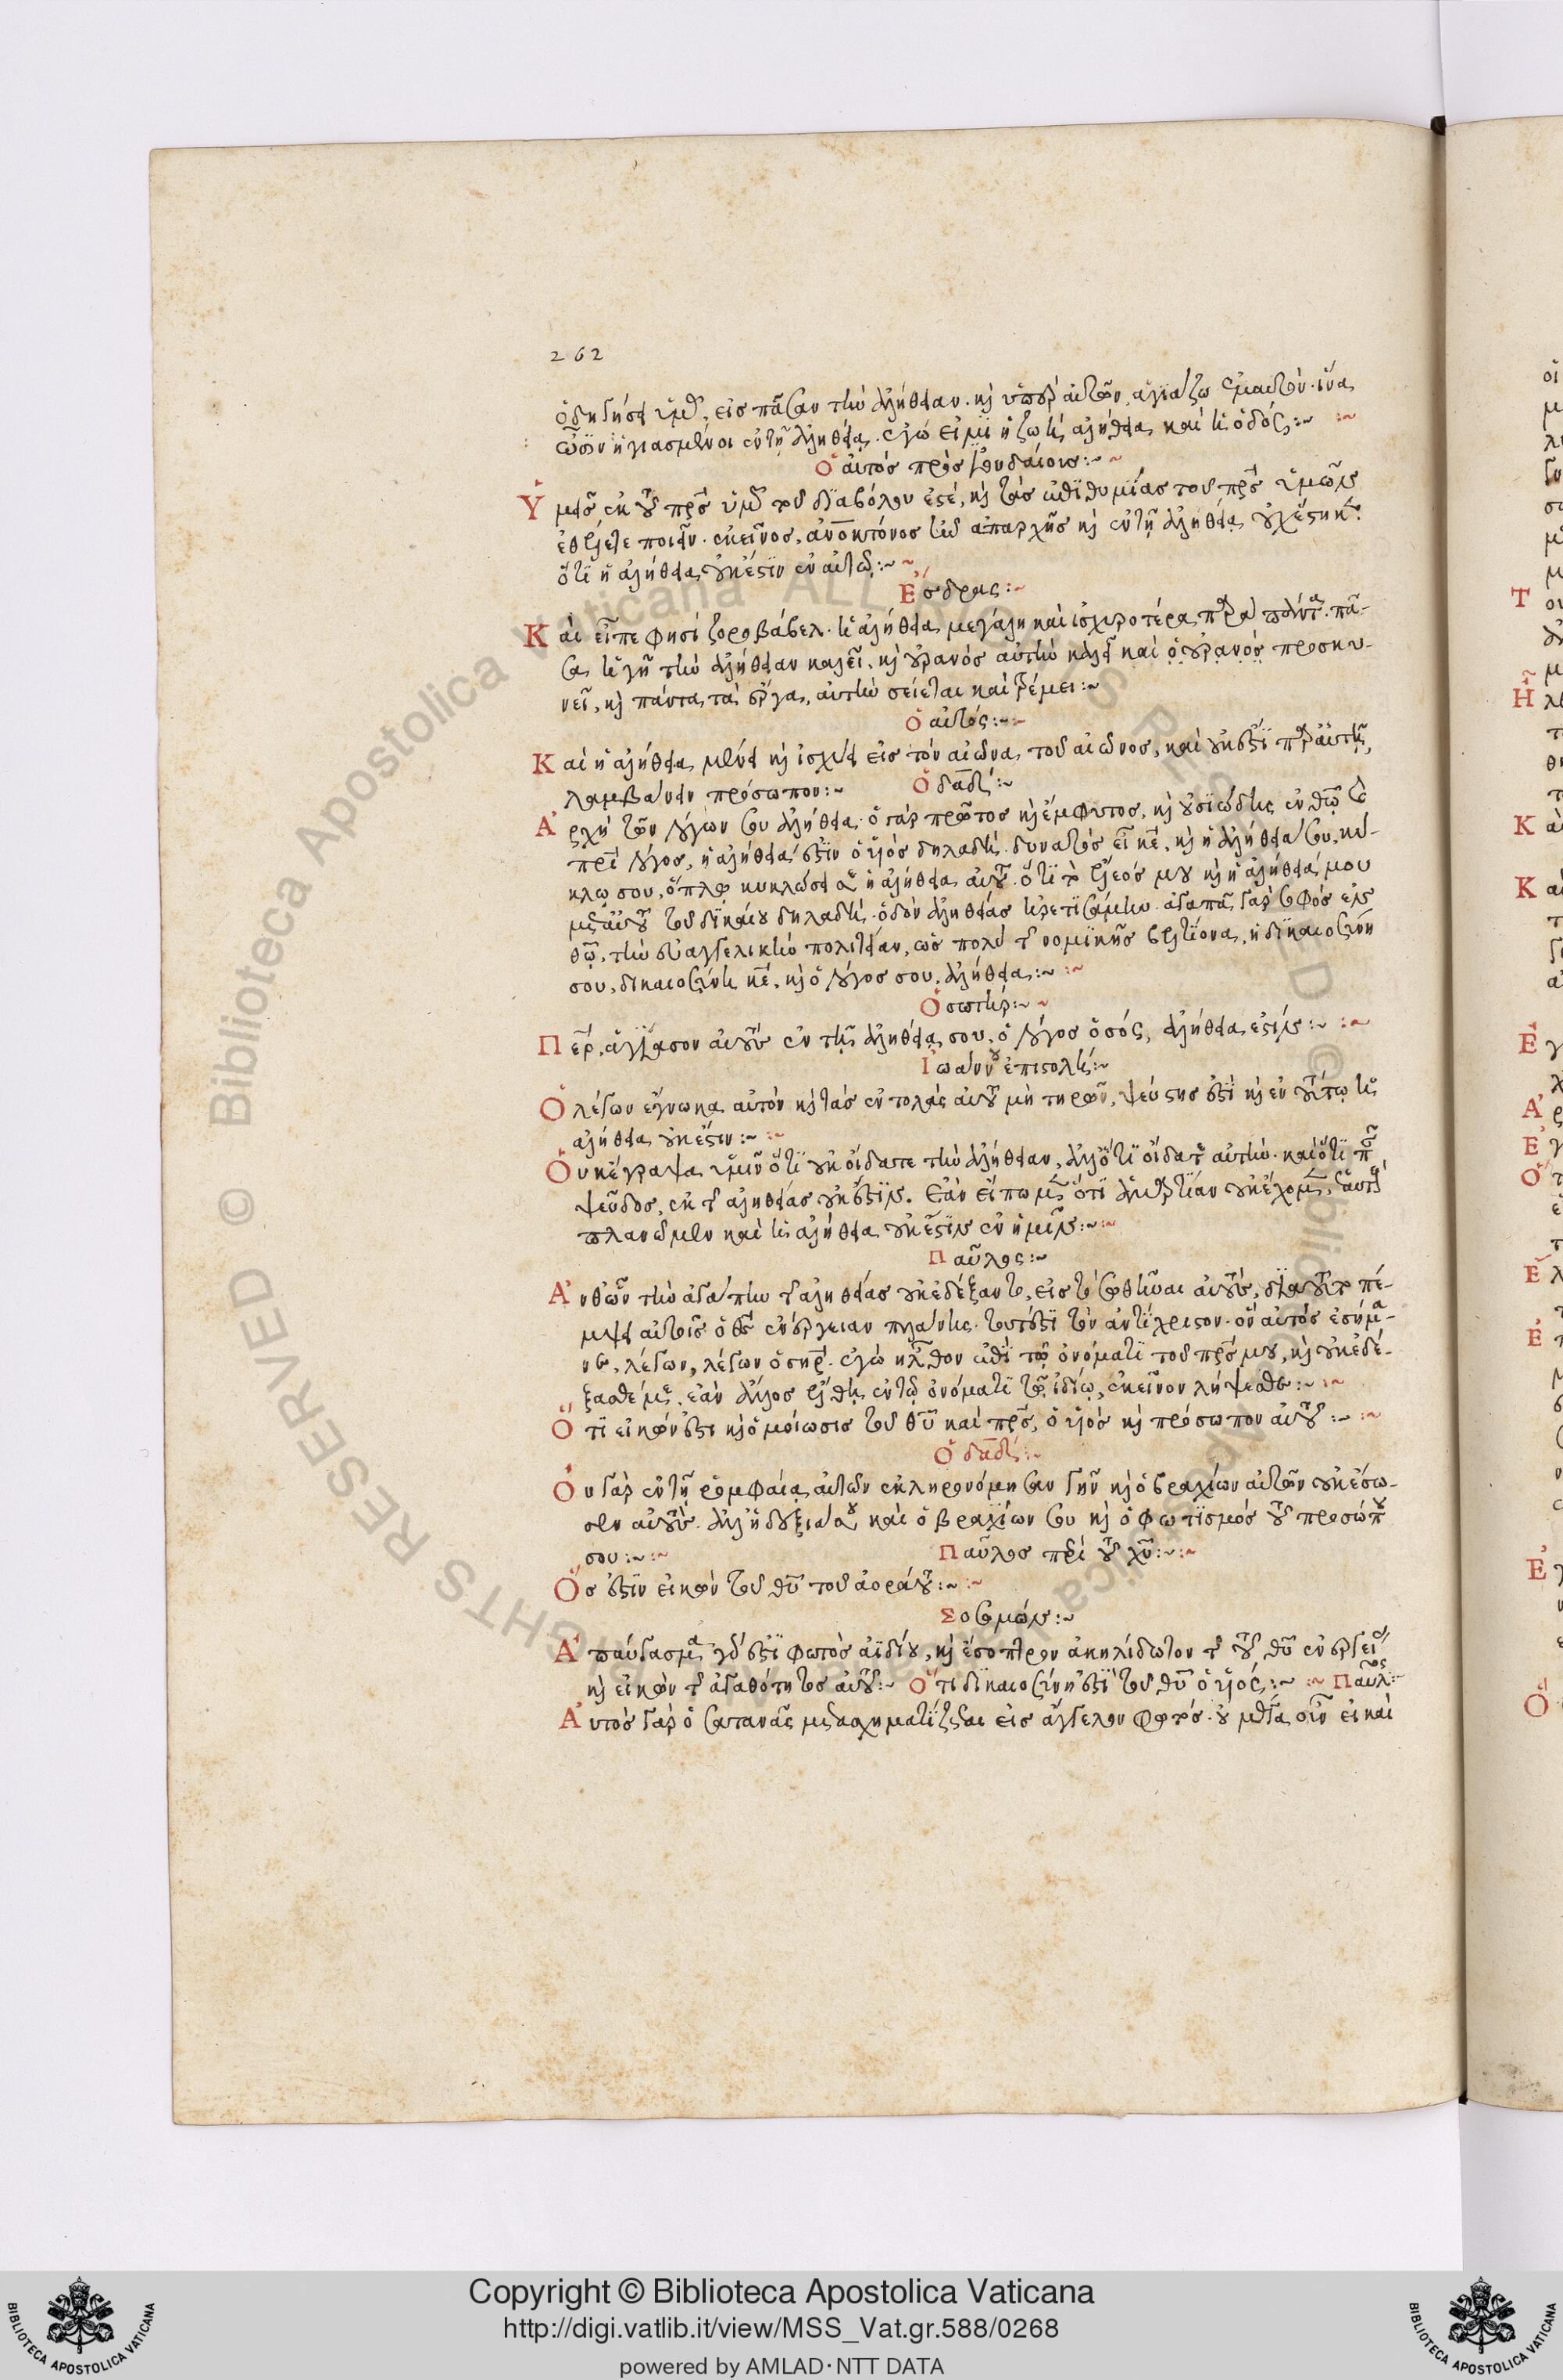 262
ὁδηγήσει ὑμᾶς, εἰς πᾶσαν τὴν ἀλήθειαν. καὶ ὑπὲρ αὐτῶν, ἁγιάζω ἐμαυτόν. ἵνα
ὦσιν ἡγιασμένοι ἐν τῇ ἀληθείᾳ. ἐγώ εἰμι ἡ ζωή, ἀλήθεια καὶ ἡ ὁδός:~
Ὁ αὐτὸς πρὸς Ἰουδαίους:~
Ὑμεῖς ἐκ τοῦ πρς ὑμῶν τοῦ διαβόλου ἐστέ, καὶ τὰς ἐπιθυμίας τοῦ πρς ὑμῶν
ἐθέλετε ποιεῖν. ἐκεῖνος, ἀνοκτόνος ἦν ἀπαρχῆς καὶ ἐν τῇ ἀληθείᾳ οὐχ ἕστηκεν.
ὅτι ἡ ἀλήθεια οὐκ ἔστιν ἐν αὐτῷ:~
Ἔσδρας:~
Καὶ εἶπε φησί ζοροβάβελ. ἡ ἀλήθεια μεγάλη καὶ ἰσχυροτέρα παρὰ πάντα. πᾶ-
σα ἡ γῆ τὴν ἀλήθειαν καλεῖ, καὶ οὐρανὸς αὐτὴν καλεῖ καὶ ὁ οὐρανός προσκυ-
νεῖ, καὶ πάντα τὰ ἔργα, αὐτὴν σείεται καὶ τρέμει:~
Ὁ αὐτός:~
Καὶ ἡ ἀλήθεια μένει καὶ ἰσχύει εἰς τὸν αἰῶνα τοῦ αἰῶνος, καὶ οὐκ ἔστι παρ' αὐτῇ,
λαμβάνειν πρόσωπον:~ Ὁ δαδ:~
Ἀρχὴ τῶν λόγων σου ἀλήθεια. ὁ γὰρ πρῶτος καὶ ἔμφυτος, καὶ οὐσιώδης ἐν θῷ τῷ
πρὶ λόγος, ἡ ἀλήθεια ἐστὶν ὁ υἱὸς δηλαδή. δυνατὸς εἶ κε, καὶ ἡ ἀλήθειά σου, κύ-
κλῳ σου, ὅπλῳ κυκλώσει σε ἡ ἀλήθεια αὐτοῦ. ὅτι τὸ ἔλεός μου καὶ ἡ ἀλήθειά μου
μετ' αὐτοῦ τοῦ δικαίου δηλαδή. ὁδὸν ἀληθείας ᾑρετισάμην. ἀγαπᾷ γὰρ
θῷ, τὴν εὐαγγελικὴν πολιτείαν, ὡς πολὺ τῆς νομικῆς βελτίονα, ἡ δικαιοσύνη
σου, δικαιοσύνη κε, καὶ ὁ λόγος σου, ἀλήθεια:~
Ὁ σωτήρ:~
Περ, ἁγίασον αὐτοὺς ἐν τῇ ἀληθείᾳ σου, ὁ λόγος ὁ σός, ἀλήθεια ἐστίν:~
Ἰωάννου ἐπιστολή:~
Ὁ λέγων ἔγνωκα αὐτὸν καὶ τὰς ἐντολὰς αὐτοῦ μὴ τηρῶν, ψεύστης ἐστὶ καὶ ἐν τούτῳ ἡ
ἀλήθεια οὐκ ἔστιν:~
Οὐκ ἔγραψα ὑμῖν ὅτι οὐκ οἴδατε τὴν ἀλήθειαν, ἀλλ' ὅτι οἴδατε αὐτήν. καὶ ὅτι πᾶν
ψεῦδος, ἐκ τῆς ἀληθείας οὐκ ἔστιν. Ἐὰν εἴπωμεν ὅτι ἁμαρτίαν οὐκ ἔχομεν, ἑαυτοὺς
πλανῶμεν καὶ ἡ ἀλήθεια οὐκ ἔστιν ἐν ἡμῖν:~
Παῦλος:~
Ἀνθῶν τὴν ἀγάπην τῆς ἀληθείας οὐκ ἐδέξαντο, εἰς τὸ σωθῆναι αὐτούς, διὰ τοῦτο πέ-
μψει αὐτοῖς ὁ θς ἐνέργειαν πλάνης. τουτέστι τὸν ἀντίχριστον. ὃν αὐτὸς ἐσήμα-
νε, λέγων, λέγων ὁ σηρ. ἐγὼ ἦλθον ἐπὶ τῷ ὀνόματι τοῦ πρς μου, καὶ οὐκ ἐδέ-
ξασθέ με. ἐὰν ἄλλος ἔλθῃ ἐν τῷ ὀνόματι τῷ ἰδίῳ, ἐκεῖνον λήψεσθε:~
Ὅτι εἰκών ἐστι καὶ ὁμοίωσις τοῦ θυ καὶ πρς, ὁ υἱὸς καὶ πρόσωπον αὐτοῦ:~
Ὁ δαδ:~
Οὐ γὰρ ἐν τῇ ῥομφαίᾳ αὐτῶν ἐκληρονόμησαν γῆν καὶ ὁ βραχίων αὐτῶν οὐκ ἔσω-
σεν αὐτούς. ἀλλ' ἡ δεξιά σου καὶ ὁ βραχίων σου καὶ ὁ φωτισμὸς τοῦ προσώπου
σου:~ Παῦλος περὶ τοῦ χυ:~
Ὅς ἐστιν εἰκὼν τοῦ θυ τοῦ ἀοράτου:~
Σολομών:~
Ἀπαύγασμα γάρ ἐστι φωτὸς ἀϊδίου, καὶ ἔσοπτρον ἀκηλίδωτον τῆς τοῦ θυ ἐνεργείας
καὶ εἰκὼν τῆς ἀγαθότητος αὐτοῦ:~ Ὅτι δικαιοσύνη ἐστὶ τοῦ θυ ὁ υἱός:~ Παῦλος:~
Αὐτὸς γὰρ ὁ σατανᾶς μετασχηματίζεται εἰς ἄγγελον φωτός. οὐ μέγα οὖν εἰ καὶ
Copyright © Biblioteca Apostolica Vaticana
http://digi.vatlib.it/view/MSS_Vat.gr.588/0268
powered by AMLAD·NTT DATA